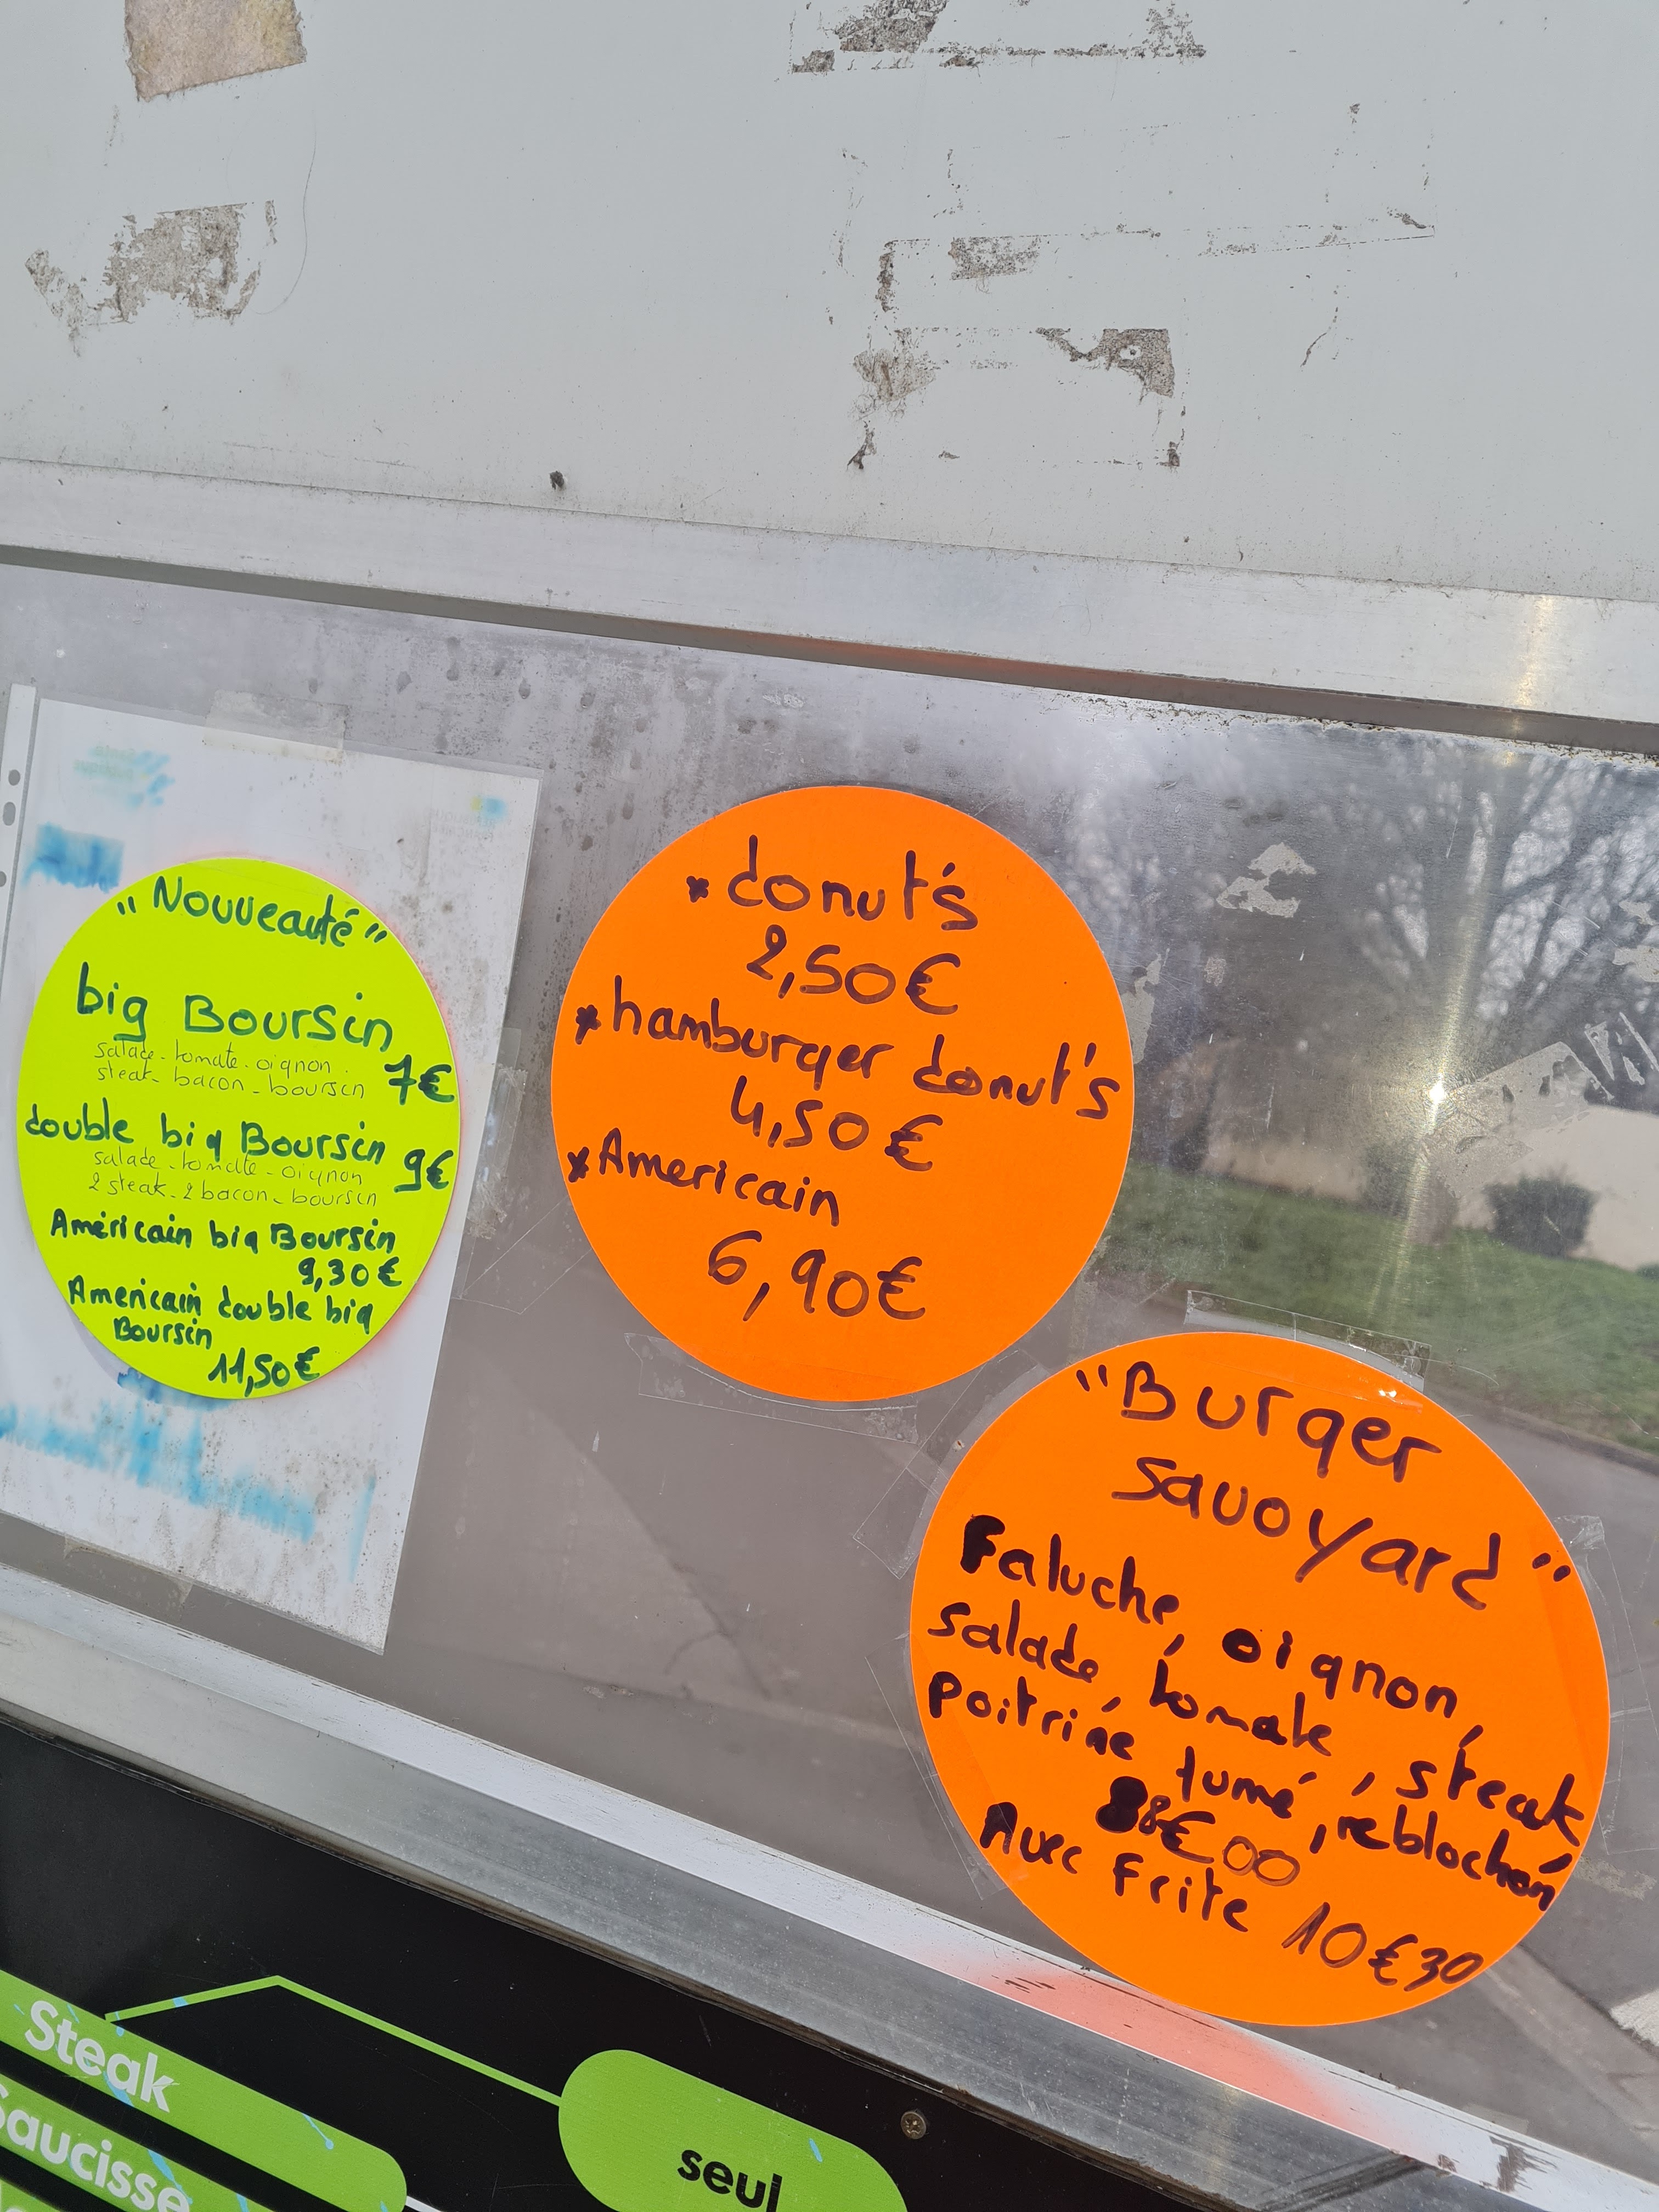 "Nouveauté"
big Boursin
salade - tomate - oignon
steak - bacon - boursin 7€
double big Boursin
salade - tomate - oignon 9€
2 steak - 2 bacon - boursin
Américain big Boursin
9,30€
Americain double big
Boursin
11,50€
* donut's
2,50€
* hamburger donut's
4,50€
* Americain
6,90€
"Burger
savoyard"
Faluche, oignon,
salade, tomate, steak
Poitrine fumé, reblochon
8€00
Avec Frite 10€30
Steak
Saucisse
seul